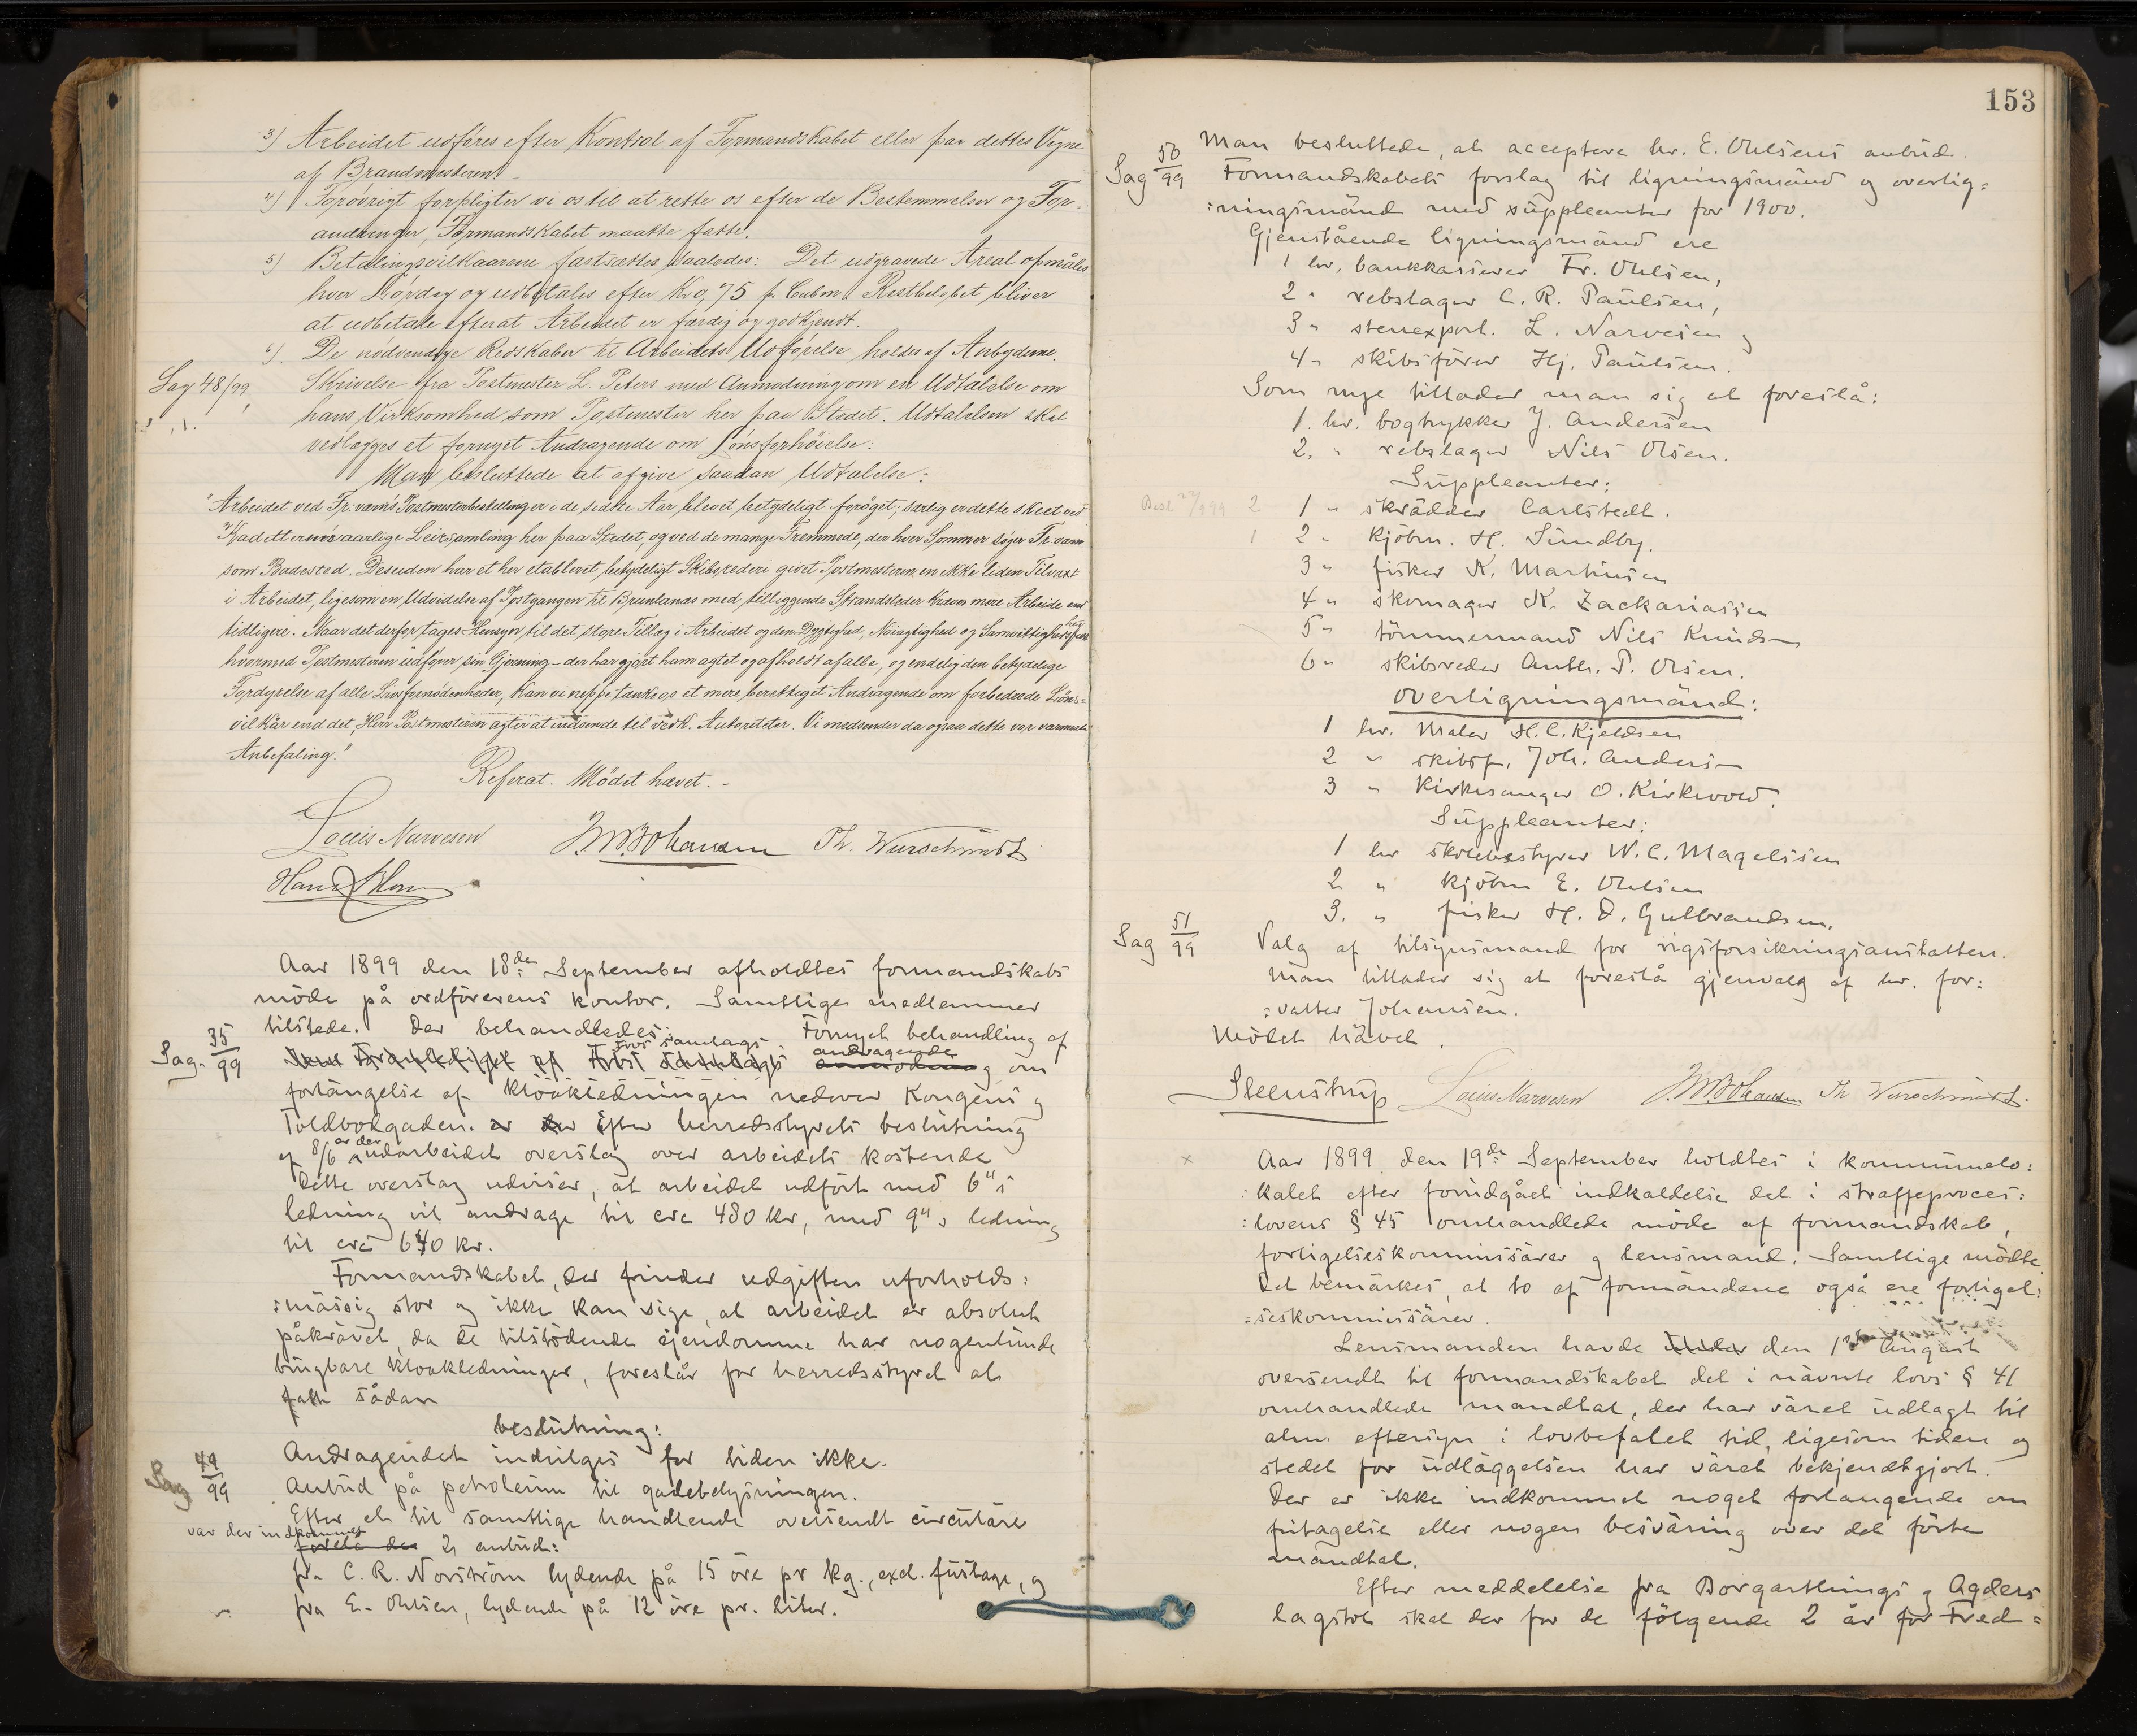 3) Arbeidet udføres efter Kontrol af Formandskabet eller paa dettes Vegne
af Brandmesteren. -
4) Forøvrigt forpligter vi os til at rette os efter de Bestemmelser og For-
andringer, Formandskabet maatte fatte.
5) Betalingsvilkaarene fastsættes saaledes: Det udgravede Areal opmåles
hver Lørdag og udbetales efter Kr 0,75 pr Cubm. Restbeløbet bliver
at udbetale efterat Arbeidet er færdig og godkjendt.
6) De nødvendige Redskaber til Arbeidets Udførelse holdes af Anbyderne.
Sag 48/99 Skrivelse fra Postmester L. Peters med Anmodning om en Udtalelse om
hans Virksomhed som Postmester her paa Stedet. Udtalelsen skal
vedlægges et fornyet Andragende om Lønsforhøielse.
Man besluttede at afgive saadan Udtalelse:
"Arbeidet ved Fr.værns Postmesterbestilling er i de sidste Aar blevet betydeligt forøget; særlig er dette skeet ved
Kadetternes aarlige Leirsamling her paa Stedet, og ved de mange Fremmede, der hver Sommer søger Fr.værn
som Badested. Desuden har et her etableret, betydeligt Skibsrederi givet Postmesteren en ikke liden Tilvæxt
i Arbeidet, ligesom en Udvidelse af Postgangen til Brunlanæs med tilliggende Strandsteder kræver mere Arbeide end
tidligere. Naar det derfor tages Hensyn til det store Tillæg i Arbeidet og den Dygtighed, Nøiagtighed og Samvittighedsfuldhed
hvormed Postmesteren udfører sin Gjerning - der har gjort ham agtet og afholdt af alle, og endelig den betydelige
Fordyrelse af alle Livsfornødenheder, kan vi neppe tænke os et mere berettiget Andragende om forbedrede Løns=
vilkår end det, Herr Postmesteren agter at indsende til vedk. Autoriteter. Vi medsender da ogsaa dette vor varmeste
Anbefaling!
Referat. Mødet hævet. -
Louis Narvesen J. M. Johansen Th. Wurschmidt
Aar 1899 den 18de September afholdtes formandskabs
møde på ordførerens kontor. Samtlige medlemmer
tilstede. Der behandledes: Fornyet behandling af
Sag. 35/99 samlags andragende om
forlængelse af kloakledningen nedover Kongens og
Toldbodgaden. Efter herredsstyrets beslutning
af 8/6 er der udarbeidet overslag over arbeidets kostende
Dette overslag udviser, at arbeidet udført med 6"s
ledning vil andrage til cra 480 kr, med 9"s ledning
til cra 640 kr.
Formandskabet, der finder udgiften uforholds:
:mässig stor og ikke kan sige, at arbeidet er absolut
påkrävet, da de tilstødende ejendomme har nogenlunde
brugbare kloakledninger, foreslår for herredsstyret at
fatte sådan
beslutning:
Andragendet indvilges for tiden ikke.
Sag 49/99 Anbud på petroleum til gadebelysningen.
Efter et til samtlige handlende oversendt circulære
var der indkommet
forelå der 2 anbud:
fra C. R. Norström lydende på 15 øre pr kg., excl. fustage, og
fra E. Ohlsen, lydende på 12 øre pr. liter.
153
Man besluttede, at acceptere hr. E. Ohlsens anbud.
Sag 50/99 Formandskabets forslag til ligningsmänd og overlig=
:ningsmänd med suppleanter for 1900.
Gjenstående ligningsmänd ere
1 hr. bankkasserer Fr. Ohlsen,
2 " rebslager C. R. Paulsen,
3 " stenexport. L. Narvesen og
4 " skibsfører Hj. Paulsen.
Som nye tillader man sig at foreslå:
1. hr. bogtrykker J. Andersen
2. " rebslager Nils Olsen.
Suppleanter:
2 1 " skrädder Carlstedt.
1 2 " kjøbm. H. Sundby.
3 " fisker K. Martinsen
4 " skomager K. Zackariassen
5 " tømmermand Nils Knudsen
6 " skibsreder Anth. P. Olsen.
Overligningsmänd:
1 hr. Maler H. C. Kjeldsen
2 " skibsf. Joh. Andersen
3 " Kirkesanger O. Kirkevold.
Suppleanter:
1 hr skolebestyrer W. C. Magelssen
2 " kjøbm E. Ohlsen
3. " fisker H. D. Gulbrandsen.
Sag 51/99 Valg af tilsynsmand for rigsforsikringsanstalten.
Man tillader sig at foreslå gjenvalg af hr. for:
:valter Johansen.
Mødet hävet.
Steenstrup Louis Narvesen J. M. Johansen Th Wurschmidt.
x Aar 1899 den 19de September holdtes i kommunelo:
:kalet efter forudgået indkaldelse det i straffeproces:
:lovens § 45 omhandlede møde af formandskab,
forligelseskommissärer og lensmand. Samtlige mødte.
Det bemärkes, at to af formändene også ere forligel:
:seskommissärer.
Lensmanden havde under den 1ste August
oversendt til formandskabet det i nävnte lovs § 41
omhandlede mandtal, der har väret udlagt til
alm. eftersyn i lovbefalet tid, ligesom tiden og
stedet for udläggelsen har väret bekjendtgjort.
Der er ikke indkommet noget forlangende om
fritagelse eller nogen besväring over det førte
mandtal.
Efter meddelelse fra Borgarthings og Agders
lagstol skal der for de følgende 2 år for Fred=